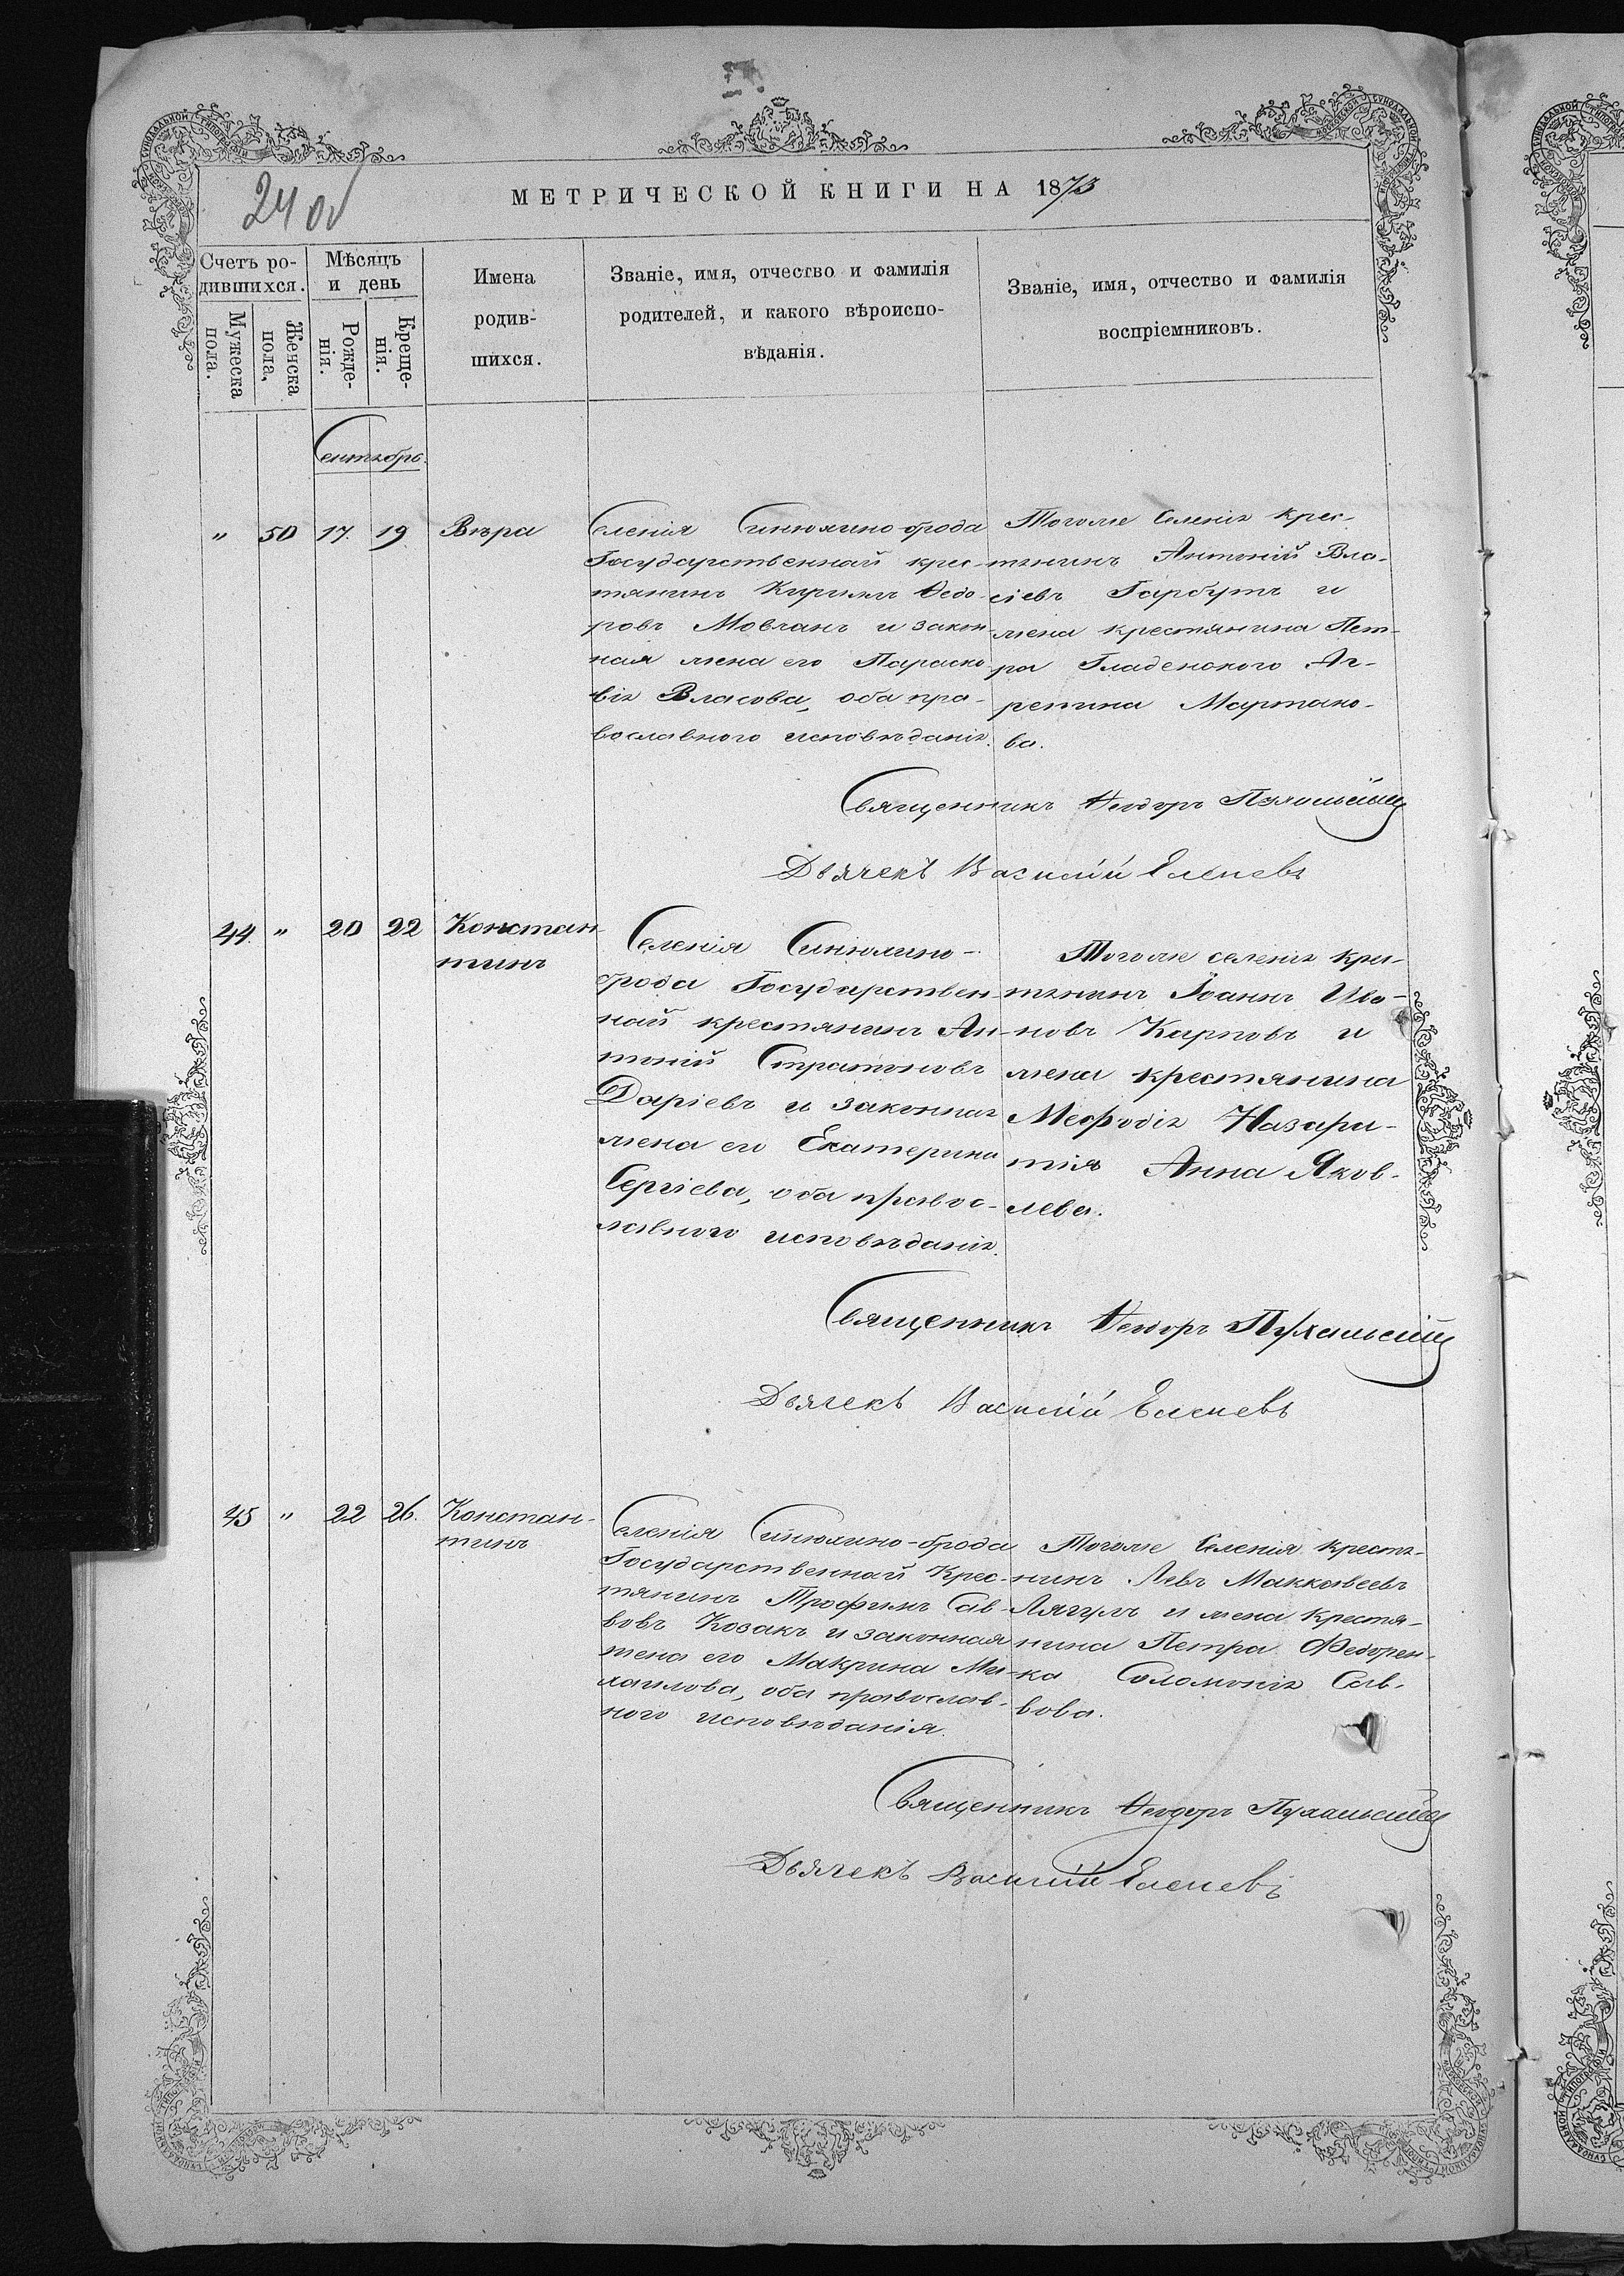 24 об
МЕТРИЧЕСКОЙ КНИГИ НА 1873
Счетъ ро-
дившихся.
Мужеска
пола.
Женска
пола,
Мѣсяцъ
и день
Рожде-
нія.
Креще-
нія.
Имена
родив-
шихся.
Званіе, имя, отчество и фамилія
родителей, и какого вѣроиспо-
вѣданія.
Званіе, имя, отчество и фамилія
воспріемниковъ.
Сентябрь.
" 50 17. 19 Вѣра
Селенія Синюхино-брода
Государственный крес-
тянинъ Кирилъ Ѳедо-
ровъ Мовчанъ и закон-
ная жена его Параске-
вія Власова, оба пра-
вославного исповѣданія.
Тогоже Селенія Крес-
тянинъ Антоній Вла-
сіевъ Гарбутъ и
жена крестянина Пет-
ра Гладенокого Аг-
репина Мартино-
ва.
Священникъ Ѳеодоръ Пухальскій
Дьячекъ Василій Еленевъ
44. " 20 22 Констан-
тинъ
Селенія Синюхино-
брода Государствен-
ный крестянинъ Ан-
тоній Стратоновъ
Даріевъ и законная
жена его Екатерина
Сергіева, оба правос-
лавного исповѣданія.
Тогоже селенія Крес-
тянинъ Іоаннъ Ива-
новъ Карповъ и
жена крестянина
Мефодія Назари-
тія Анна Яков-
лева.
Священникъ Ѳеодоръ Пухальскій
Дьячекъ Василій Еленевъ
45 " 22 26. Констан-
тинъ
Селенія Синюхино-брода
Государственный Крес-
тянинъ Трофимъ Сав-
вовъ Козакъ и законная
жена его Макрина Ми-
хаилова, оба православ-
ного исповѣданія.
Тогоже Селенія Крестя-
нинъ Левъ Маккавеевъ
Лягулъ и жена Крестя-
нина Петра Федорен-
ка Соломонія Сав-
вова.
Священникъ Ѳеодоръ Пухальскій
Дьячекъ Василій Еленевъ